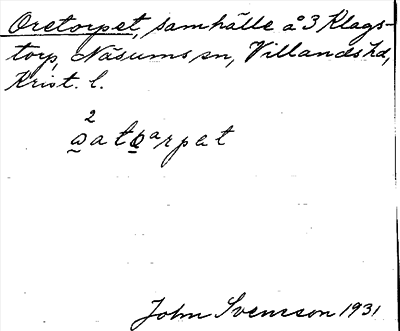 Oretorpet, samhälle å 3 Klags-
torp, Näsums sn, Villands hd,
Krist. l.
2
John Svensson 1931